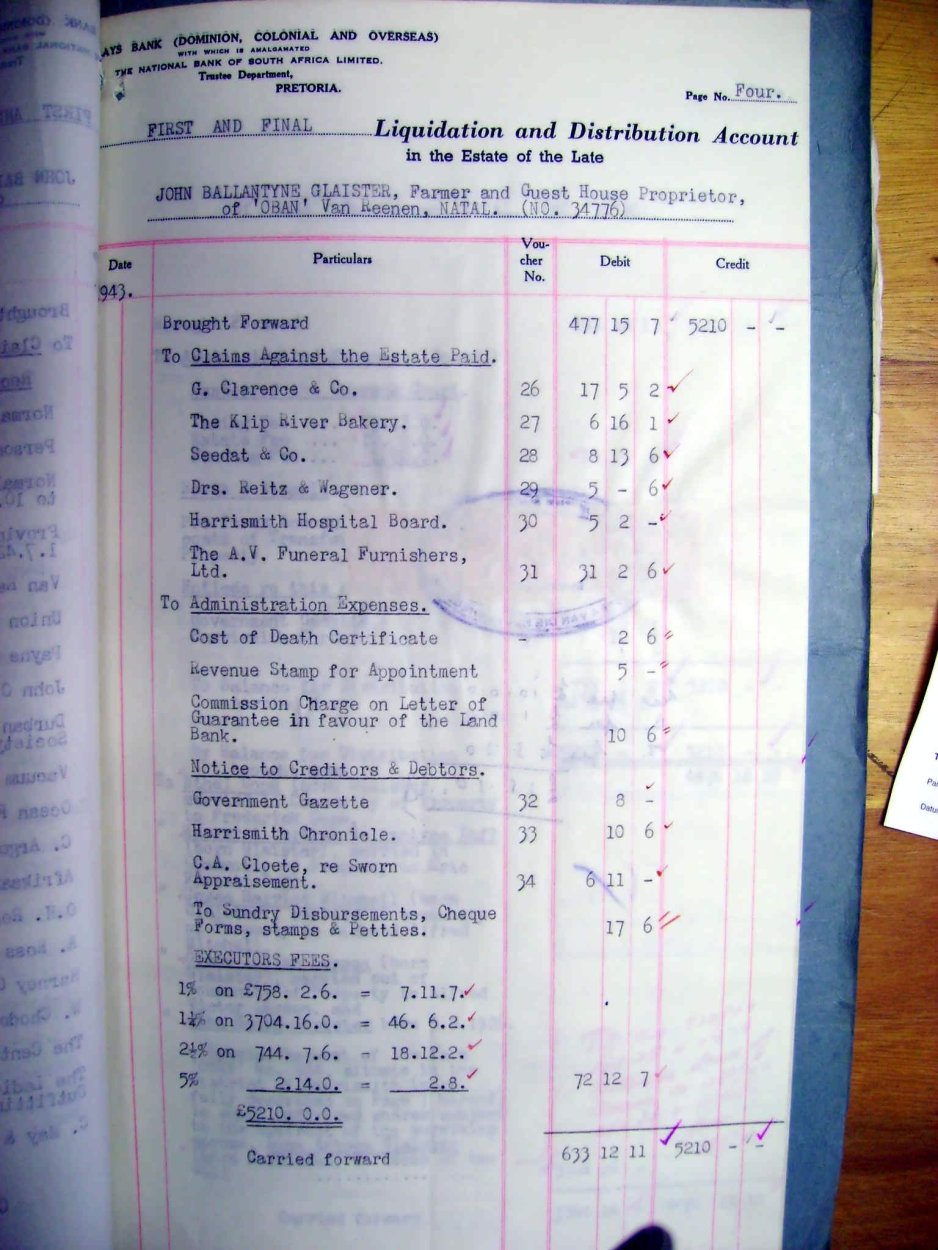 AYS BANK (DOMINION, COLONIAL AND OVERSEAS)
WITH WHICH IS AMALGAMATED
THE NATIONAL BANK OF SOUTH AFRICA LIMITED.
Trustee Department,
PRETORIA.
Page No. Four.
FIRST AND FINAL Liquidation and Distribution Account
in the Estate of the Late
JOHN BALLANTYNE GLAISTER, Farmer and Guest House Proprietor,
of 'OBAN' Van Reenen, NATAL. (NO. 34776)
Date Particulars Vou-cher No. Debit Credit
943.
Brought Forward 477 15 7 5210 - -
To Claims Against the Estate Paid.
G. Clarence & Co. 26 17 5 2
The Klip River Bakery. 27 6 16 1
Seedat & Co. 28 8 13 6
Drs. Reitz & Wagener. 29 5 - 6
Harrismith Hospital Board. 30 5 2 -
The A.V. Funeral Furnishers,
Ltd. 31 31 2 6
To Administration Expenses.
Cost of Death Certificate - 2 6
Revenue Stamp for Appointment 5 -
Commission Charge on Letter of
Guarantee in favour of the Land
Bank. 10 6
Notice to Creditors & Debtors.
Government Gazette 32 8 -
Harrismith Chronicle. 33 10 6
C.A. Cloete, re Sworn
Appraisement. 34 6 11 -
To Sundry Disbursements, Cheque
Forms, stamps & Petties. 17 6
EXECUTORS FEES.
1% on £758. 2.6. = 7.11.7.
1¼% on 3704.16.0. = 46. 6.2.
2½% on 744. 7.6. - 18.12.2.
5% 2.14.0. = 2.8. 72 12 7
£5210. 0.0.
Carried forward 633 12 11 5210 - -